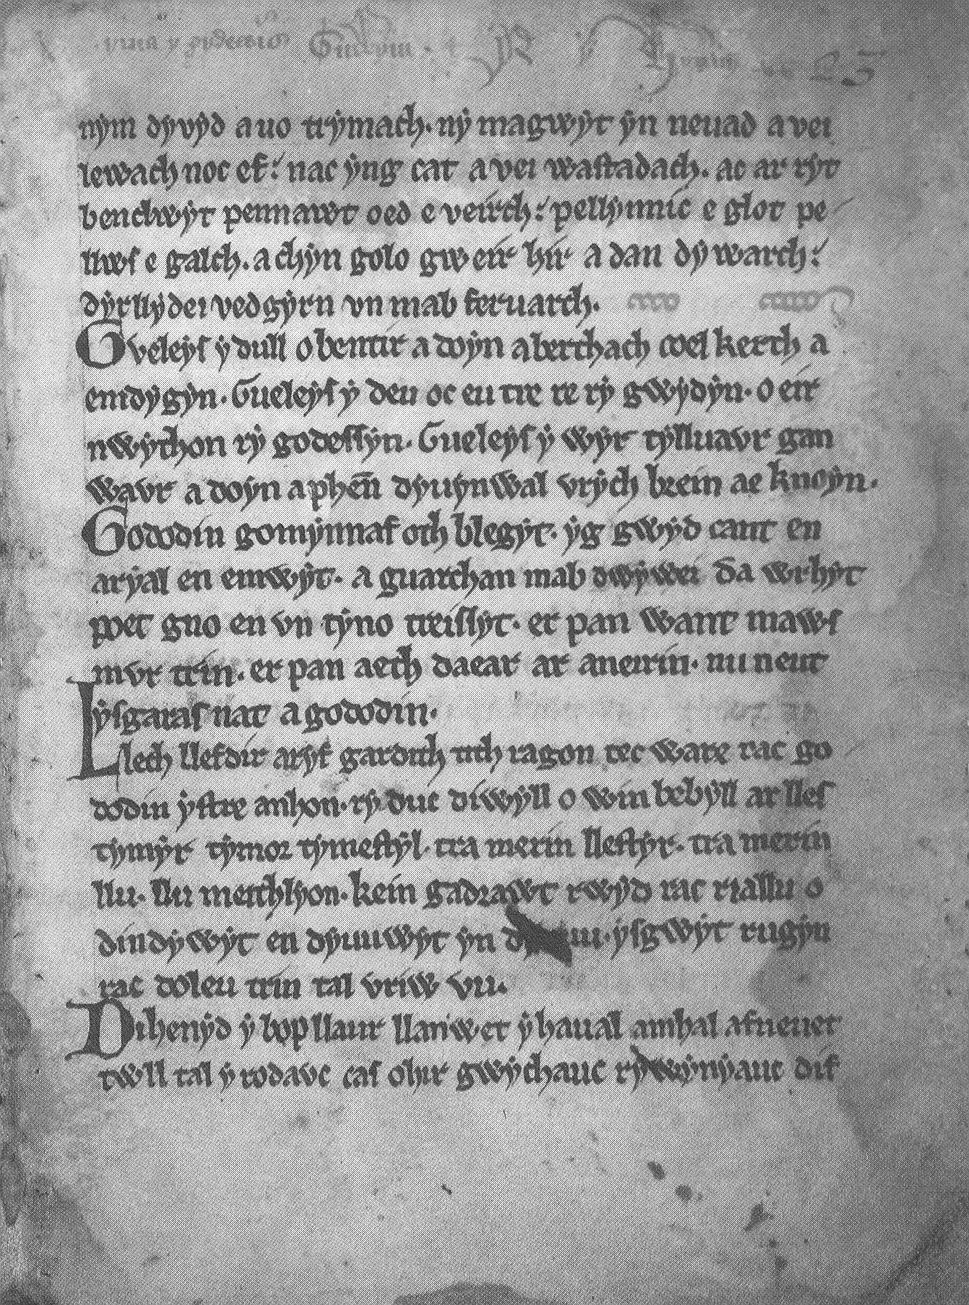 nẏm dẏvẏd a uo trẏmach. nẏ magwẏt ẏn neuad a vei
lewach noc ef. nac ẏng cat a vei wastadach. ac ar rẏt
benclwẏt pennawt oed e veirch. pellẏnnic e glot pe
llws e galch. a chẏn golo gweir hir a dan dẏwarch.
dẏrllẏdei vedgẏrn vn mab feruarch.
Gveleẏs ẏ dull o bentir a doẏn aberthach coel kerth a
emdẏgẏn. Gueleẏs ẏ deu oc eu tre re rẏ gwẏdẏn. o eir
nwẏthon rẏ godessẏn. Gueleẏs ẏ wẏr tẏlluavr gan
wavr a doẏn a phen̄ dẏuẏnwal vrẏch brein ae knoẏn.
Gododin gomẏnnaf oth blegẏt. ẏg gwẏd cant en
arẏal en emwẏt. a guarchan mab dwẏwei da wrhẏt
poet gno en vn tẏno treissẏt. er pan want maws
mvr trin. er pan aeth daear ar aneirin. nu neut
ẏsgaras nat a gododin.
Llech llefdir arẏf gardith tith ragon tec ware rac go
dodin ẏstre anhon. rẏ duc diwẏll o win bebẏll ar lles
tẏmẏr tẏmor tẏmestẏl. tra merin llestẏr. tra merin
llu. llu meithlẏon. kein gadrawt rwẏd rac riallu o
dindẏwẏt en dẏuuwẏt ẏn ẏsgwẏt rugẏn
rac doleu trin tal vriw vu.
Dihenẏd ẏ bop llaur llanw et ẏ haual amhal afneuet
twll tal ẏ rodavc cas ohir gwẏchauc rẏwẏnẏauc dif